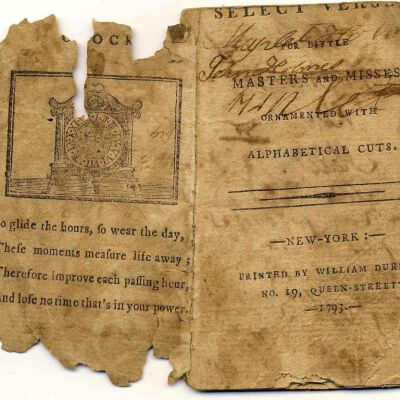 CLOCK
So glide the hours, so wear the day,
These moments measure life away;
Therefore improve each passing hour,
And lose no time that's in your power.
SELECT VERSES
FOR LITTLE
MASTERS AND MISSES
ORNAMENTED WITH
ALPHABETICAL CUTS.
—NEW-YORK:—
PRINTED BY WILLIAM DURE
NO. 19, QUEEN-STREET
—1793.—